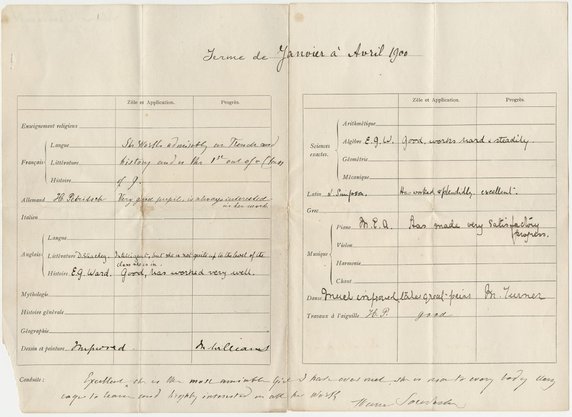 Terme de Janvier à Avril 1900
Zèle et Application. Progrès.
Enseignement religieux
Français
Langue She works admirably in French and
Littérature History and is the 1st out of a class
Histoire of 9.
Allemand Very good pupil, is always interested
in her work.
Italien
Anglais
Langue
Littérature Intelligent, but she is not quite up to the level of the
class she is in.
Histoire E.G. Ward. Good, has worked very well.
Mythologie
Histoire générale
Géographie
Dessin et peinture Improved. M. Williams
Zèle et Application. Progrès.
Sciences exactes.
Arithmétique
Algèbre E.G.W. Good, works hard & steadily.
Géométrie
Mécanique
Latin Has worked splendidly. excellent.
Grec
Musique
Piano M.E.A. Has made very satisfactory
progress.
Violon
Harmonie
Chant
Danse Much improved takes great pains M. Turner
Travaux à l'aiguille H.P. good
Conduite : Excellent, she is the most amiable girl I have ever met, she is nice to every body very
eager to learn and highly interested in all her work
Marie Souvestre